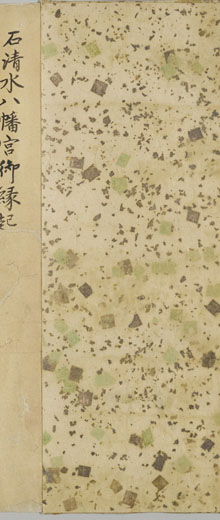 石清水八幡宮御縁起